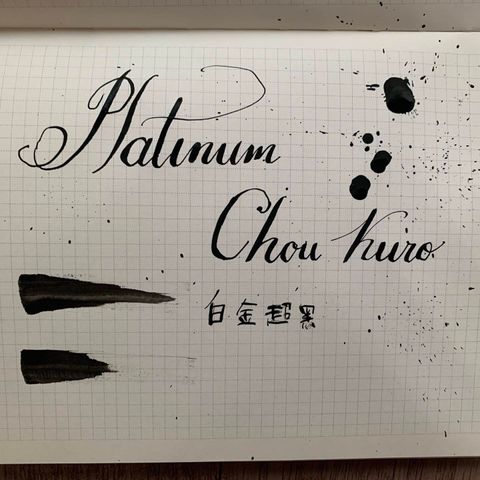 Platinum
Chou Kuro
白金超黑